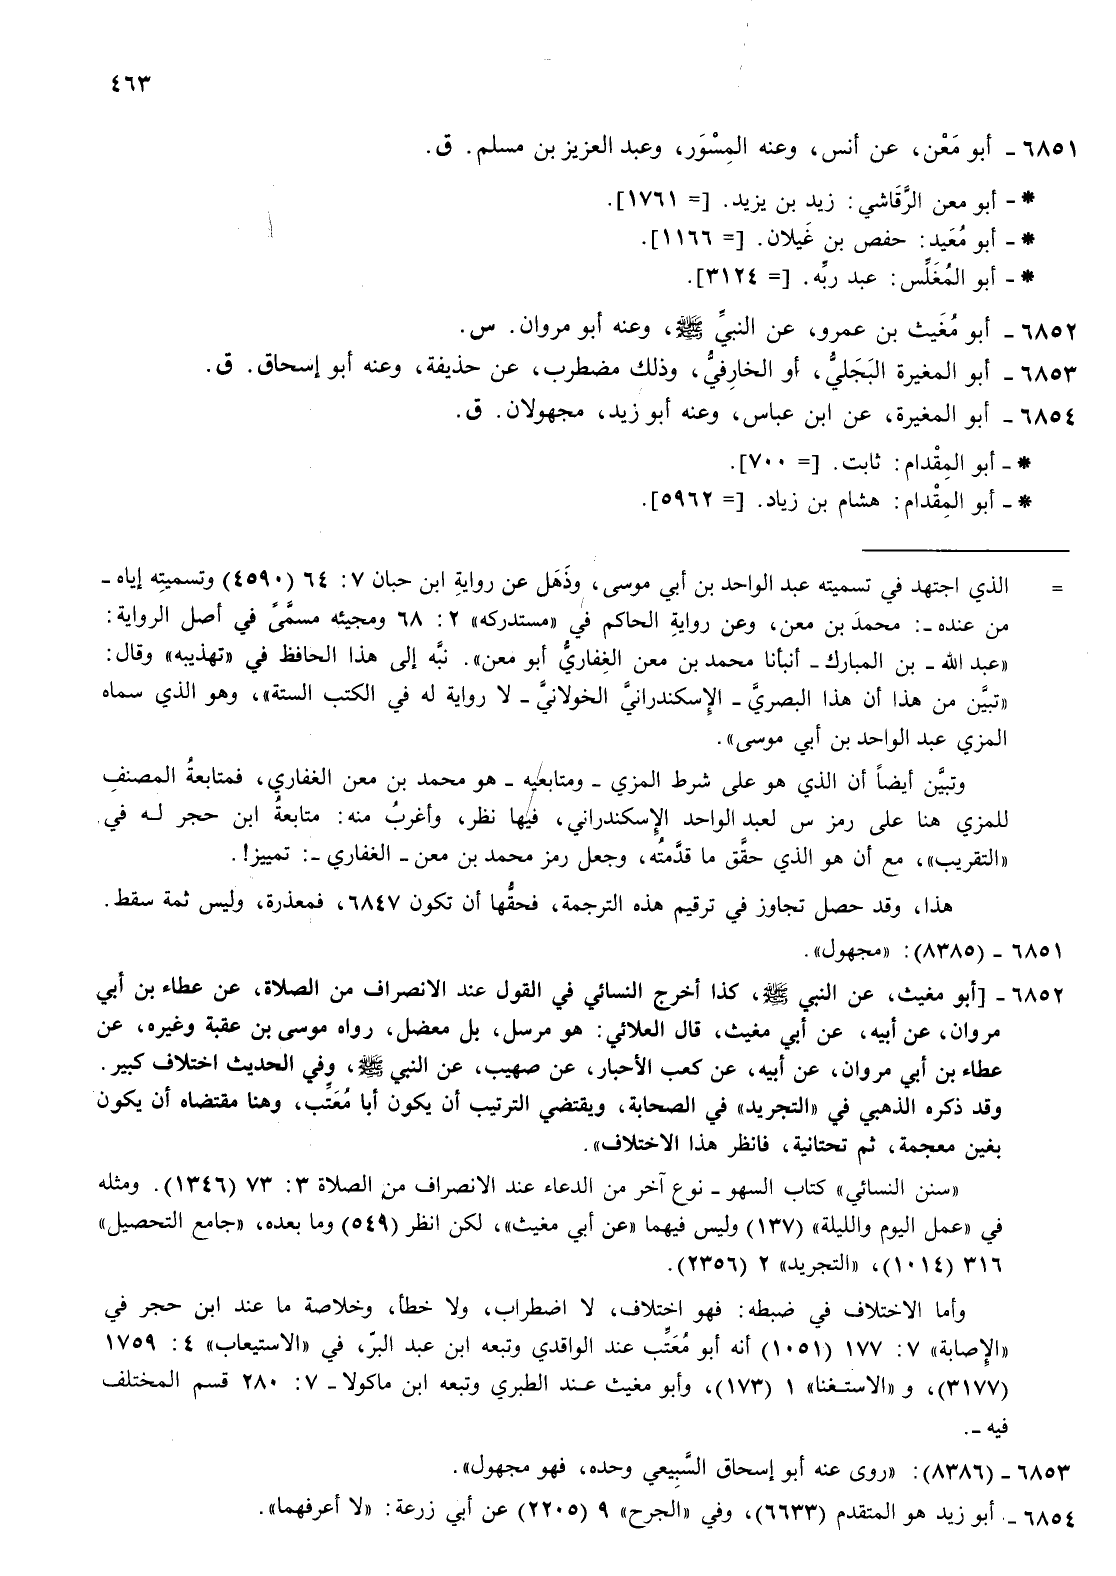 ٤٦٣
٦٨٥١ ـ أبو مَعْن، عن أنس، وعنه المِسْوَر، وعبد العزيز بن مسلم. ق.
* ـ أبو معن الرَّقَاشي: زيد بن يزيد. [= ١٧٦١].
* ـ أبو مُعَيد: حفص بن غَيلان. [= ١١٦٦].
* ـ أبو المُغَلِّس: عبد ربِّه. [= ٣١٢٤].
٦٨٥٢ ـ أبو مُغَيث بن عمرو، عن النبيِّ ﷺ، وعنه أبو مروان. س.
٦٨٥٣ ـ أبو المغيرة البَجَليُّ، أو الخارِفيُّ، وذلك مضطرب، عن حذيفة، وعنه أبو إسحاق. ق.
٦٨٥٤ ـ أبو المغيرة، عن ابن عباس، وعنه أبو زيد، مجهولان. ق.
* ـ أبو المِقْدام: ثابت. [= ٧٠٠].
* ـ أبو المِقْدام: هشام بن زياد. [= ٥٩٦٢].
= الذي اجتهد في تسميته عبد الواحد بن أبي موسى، وذَهَل عن روايةِ ابن حبان ٧: ٦٤ (٤٥٩٠) وتسميتِه إياه ـ
من عنده ـ: محمدَ بن معن، وعن روايةِ الحاكم في «مستدركه» ٢: ٦٨ ومجيئه مسمًّى في أصل الرواية:
«عبد الله ـ بن المبارك ـ أنبأنا محمد بن معن الغِفاريُّ أبو معن». نبَّه إلى هذا الحافظ في «تهذيبه» وقال:
«تبيَّن من هذا أن هذا البصريَّ ـ الإسكندرانيَّ الخولانيَّ ـ لا رواية له في الكتب الستة»، وهو الذي سماه
المزي عبد الواحد بن أبي موسى».
وتبيَّن أيضاً أن الذي هو على شرط المزي ـ ومتابعيه ـ هو محمد بن معن الغفاري، فمتابعةُ المصنفِ
للمزي هنا على رمز س لعبد الواحد الإسكندراني، فيها نظر، وأغربُ منه: متابعةُ ابن حجر لـه في
«التقريب»، مع أن هو الذي حقَّق ما قدَّمتُه، وجعل رمز محمد بن معن ـ الغفاري ـ: تمييز!.
هذا، وقد حصل تجاوز في ترقيم هذه الترجمة، فحقُّها أن تكون ٦٨٤٧، فمعذرة، وليس ثمة سقط.
٦٨٥١ ـ (٨٣٨٥): «مجهول».
٦٨٥٢ ـ [أبو مغيث، عن النبي ﷺ، كذا أخرج النسائي في القول عند الانصراف من الصلاة، عن عطاء بن أبي
مروان، عن أبيه، عن أبي مغيث، قال العلائي: هو مرسل، بل معضل، رواه موسى بن عقبة وغيره، عن
عطاء بن أبي مروان، عن أبيه، عن كعب الأحبار، عن صهيب، عن النبي ﷺ، وفي الحديث اختلاف كبير.
وقد ذكره الذهبي في «التجريد» في الصحابة، ويقتضي الترتيب أن يكون أبا مُعَتِّب، وهنا مقتضاه أن يكون
بغين معجمة، ثم تحتانية، فانظر هذا الاختلاف».
«سنن النسائي» كتاب السهو ـ نوع آخر من الدعاء عند الانصراف من الصلاة ٣: ٧٣ (١٣٤٦). ومثله
في «عمل اليوم والليلة» (١٣٧) وليس فيهما «عن أبي مغيث»، لكن انظر (٥٤٩) وما بعده، «جامع التحصيل»
٣١٦ (١٠١٤)، «التجريد» ٢ (٢٣٥٦).
وأما الاختلاف في ضبطه: فهو اختلاف، لا اضطراب، ولا خطأ، وخلاصة ما عند ابن حجر في
«الإصابة» ٧: ١٧٧ (١٠٥١) أنه أبو مُعَتِّب عند الواقدي وتبعه ابن عبد البرّ، في «الاستيعاب» ٤: ١٧٥٩
(٣١٧٧)، و «الاستغنا» ١ (١٧٣)، وأبو مغيث عند الطبري وتبعه ابن ماكولا ـ ٧: ٢٨٠ قسم المختلف
فيه ـ.
٦٨٥٣ ـ (٨٣٨٦): «روى عنه أبو إسحاق السَّبِيعي وحده، فهو مجهول».
٦٨٥٤ ـ أبو زيد هو المتقدم (٦٦٣٣)، وفي «الجرح» ٩ (٢٢٠٥) عن أبي زرعة: «لا أعرفهما».